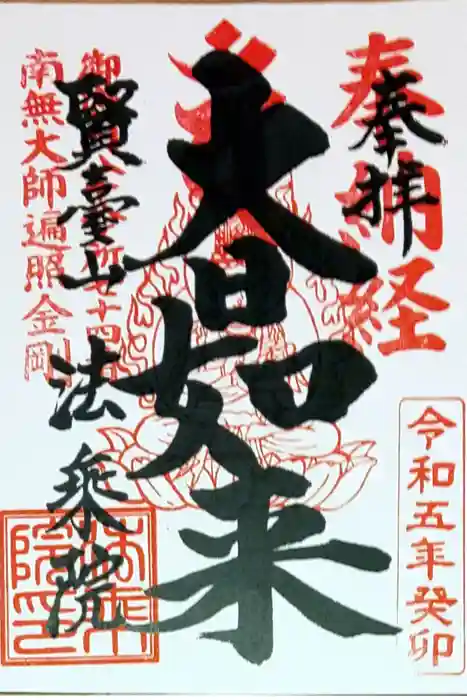 奉納経
奉拝
大日如来
賢臺山 法乗院
南無大師遍照金剛
令和五年癸卯